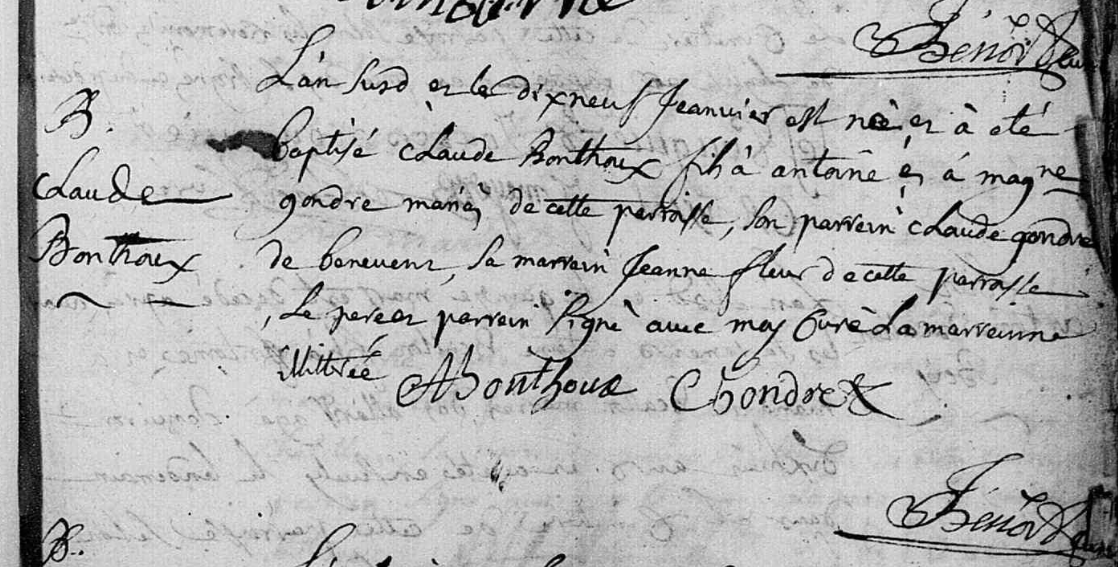 Benoit Curé
L'an susd et le dixneuf Jeanvier est néè et à eté
B.
baptisé cLaude Bonthoux fils à antoine et à magne
cLaude
gondre mariés de cette perroisse, son parrein cLaude gondre
Bonthoux
de benevent, sa marrein Jeanne fleur de cette perroisse
, Le pere et parrein signé avec moy Curé La marreinne
illittrée ABonthoux CGondre
Benoit Curé
B.